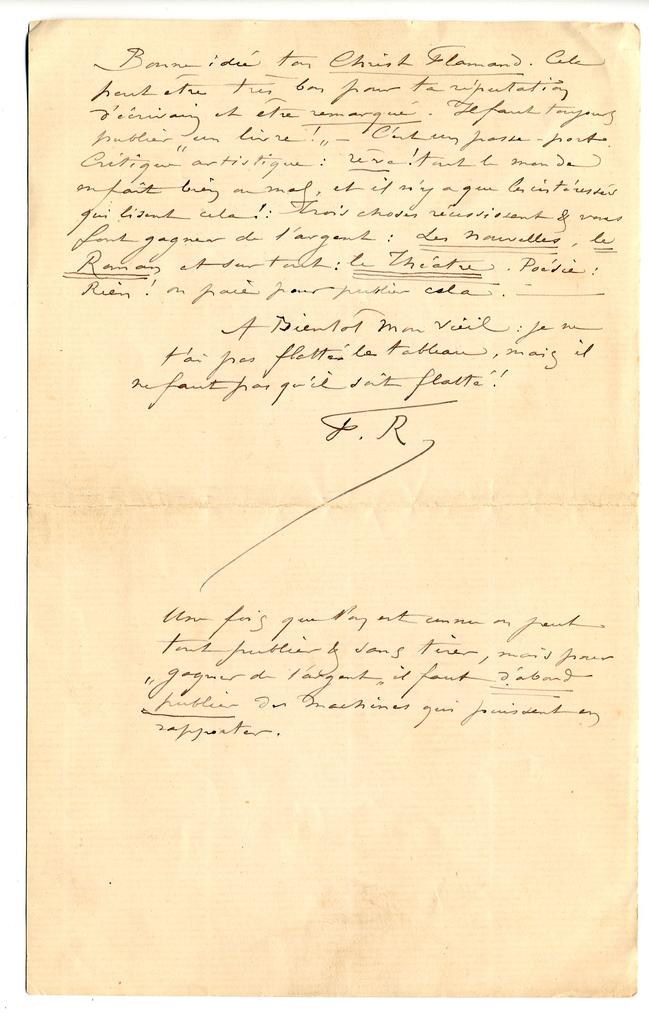 Bonne idée ton Christ Flamand. Cela
peut être très bon pour ta réputation
d'écrivain et être remarqué. Il faut toujours
publier un livre! „ — C'est un passe-port.
Critique " artistique : ! tout le monde
en fait bien ou mal, et il n'y a que les intéressés
qui lisent cela! : Trois choses réussissent & vous
font gagner de l'argent : Les Nouvelles, le
Roman et surtout : le Théâtre. Poésie :
Rien! on paie pour publier cela. —
A Bientôt mon vieil : je ne
t'ai pas flatté le tableau, mais il
ne faut pas qu'il soit flatté!
F. R
Une fois que l'on est connu on peut
tout publier & sans tirer, mais pour
„gagner de l'argent„ il faut d'abord
publier des machines qui puissent en
rapporter.